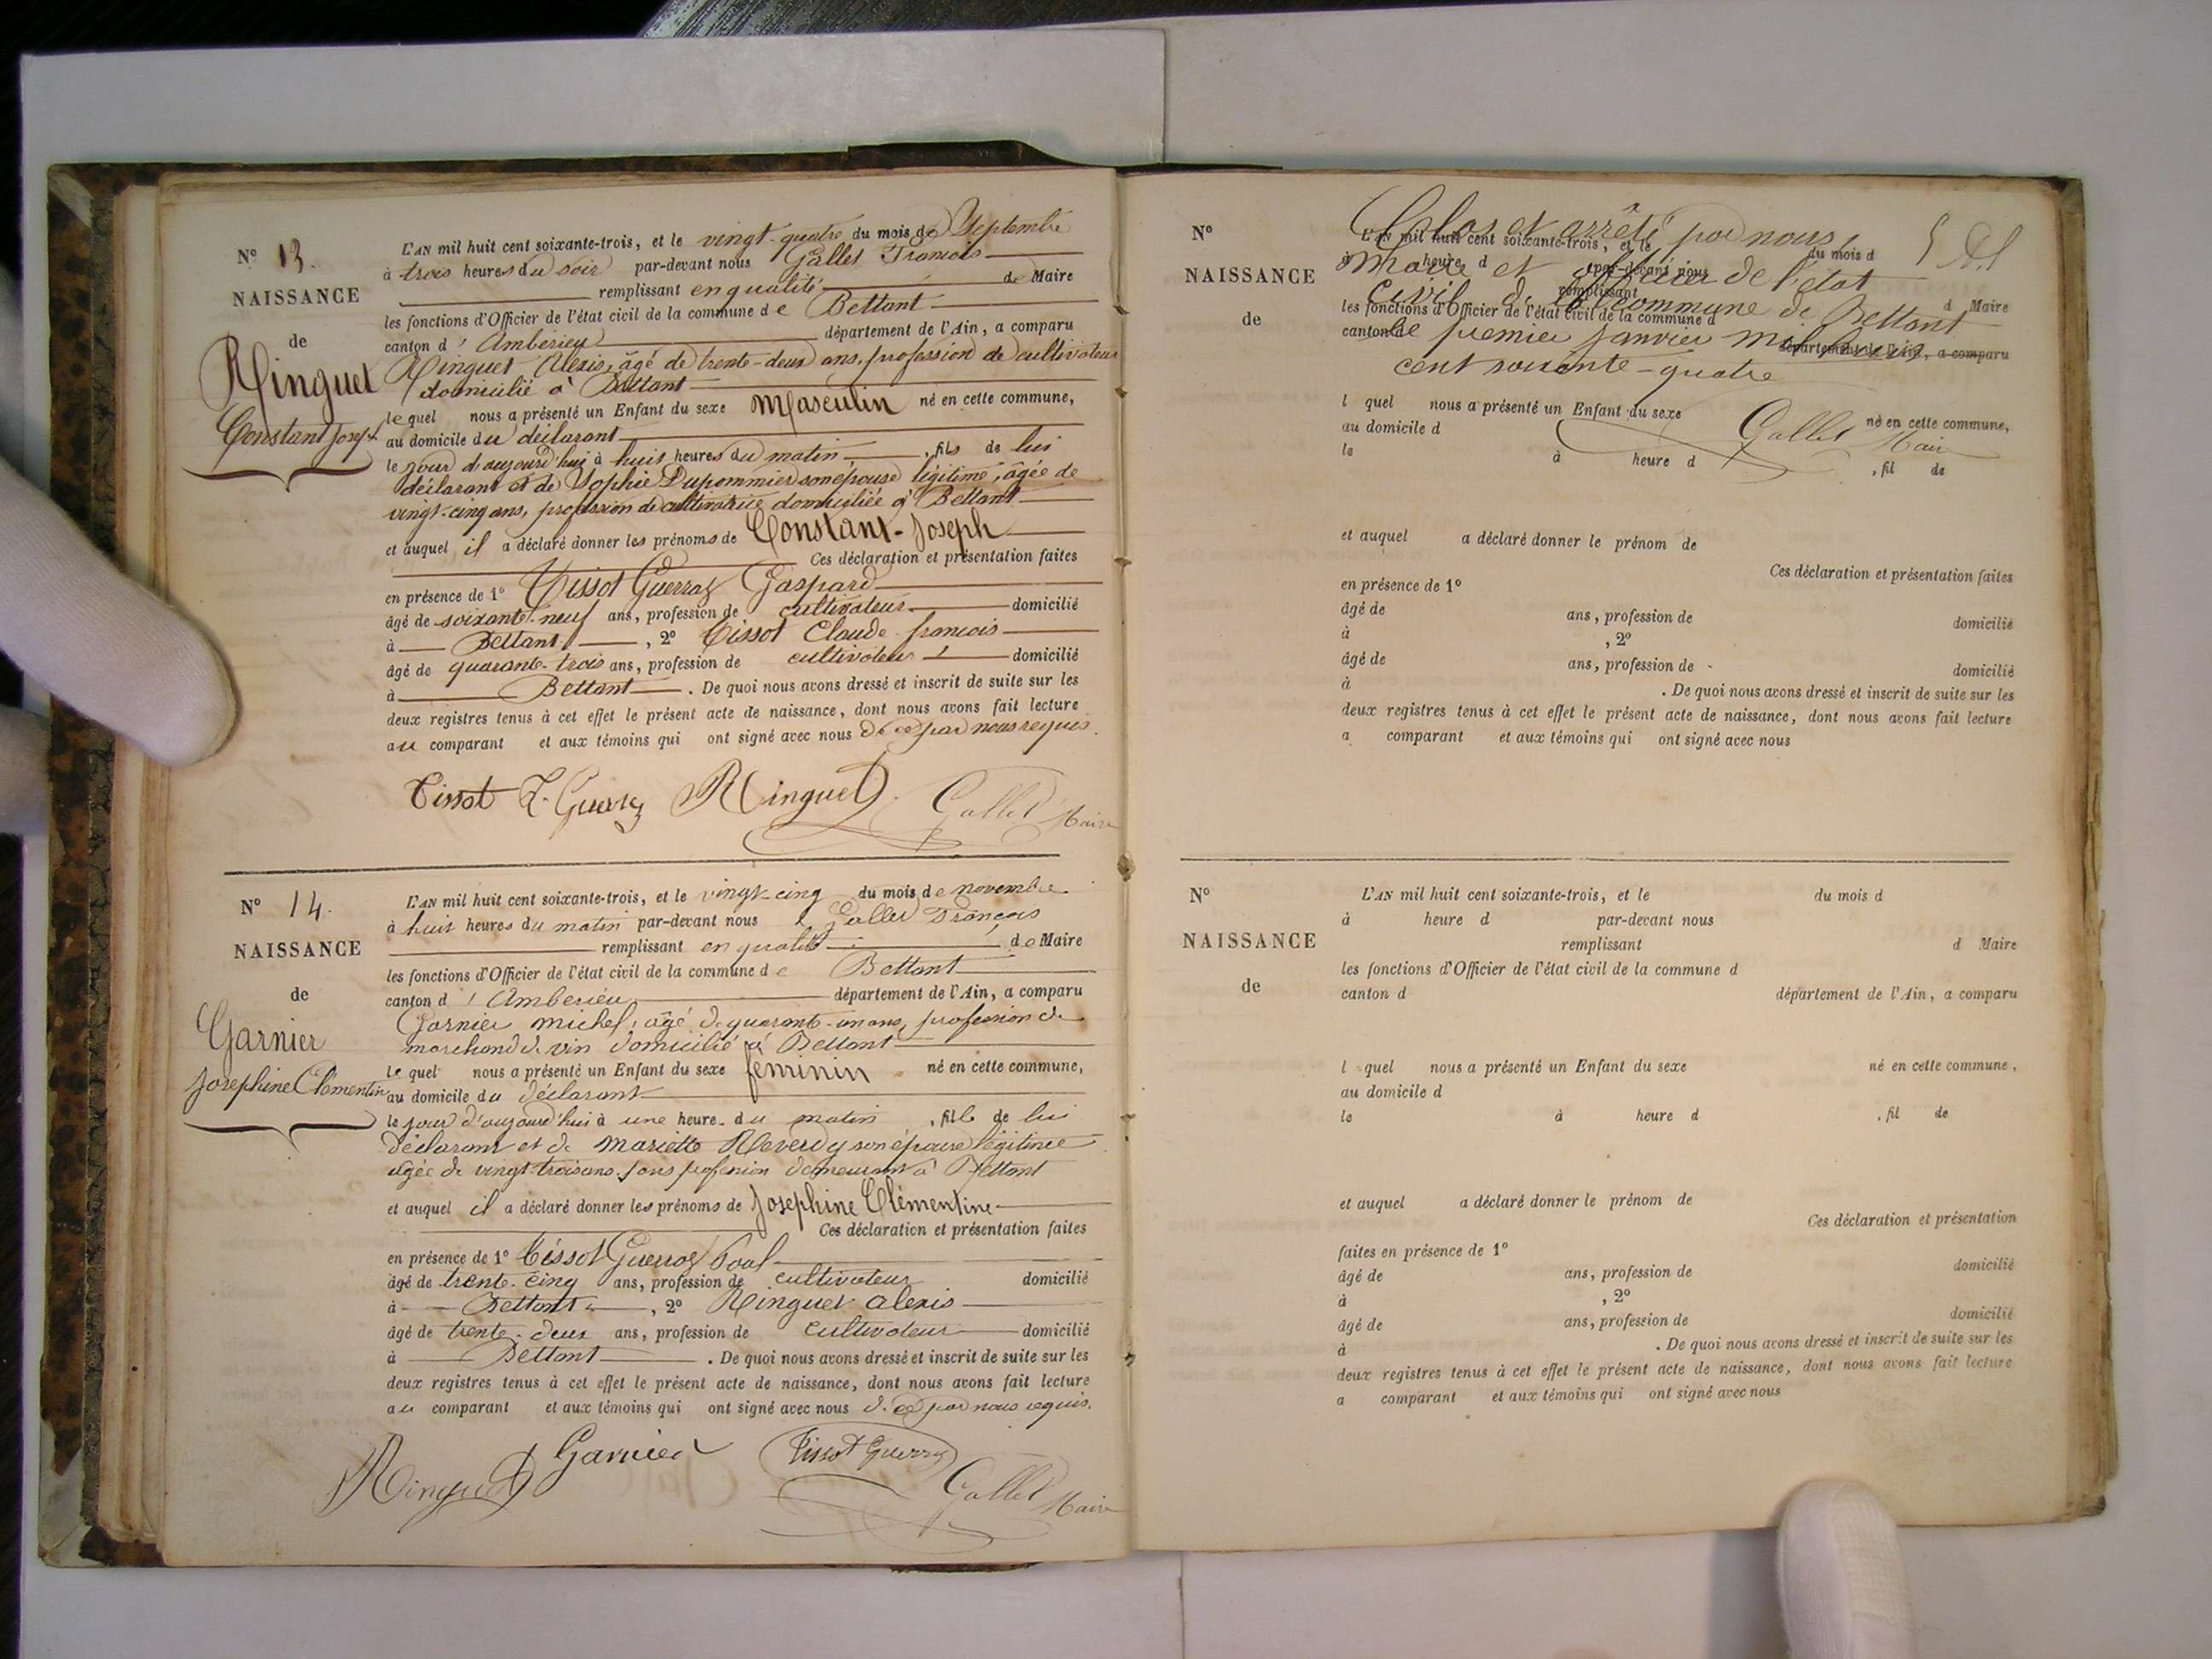 N° 13.
NAISSANCE
de
Ringuet
Constant Joseph
L'AN mil huit cent soixante-trois, et le vingt-quatre du mois de Septembre
à trois heures du soir par-devant nous Gallet François
remplissant en qualité de Maire
les fonctions d'Officier de l'état civil de la commune de Bettant
canton d'Amberieu département de l'Ain, a comparu
Ringuet Alexis, âgé de trente-deux ans, profession de cultivateur
domicilié à Bettant
lequel nous a présenté un Enfant du sexe Masculin né en cette commune,
au domicile du déclarant
le jour d'aujourd'hui à huit heures du matin, fils de lui
déclarant et de Sophie Dupommier son épouse légitime, âgée de
vingt-cinq ans, profession de cultivatrice domiciliée à Bettant
et auquel il a déclaré donner les prénoms de Constant-Joseph
Ces déclaration et présentation faites
en présence de 1° Tissot Guerraz Gaspard
âgé de soixante-neuf ans, profession de cultivateur domicilié
à Bettant, 2° Tissot Claude françois
âgé de quarante-trois ans, profession de cultivateur domicilié
à Bettant. De quoi nous avons dressé et inscrit de suite sur les
deux registres tenus à cet effet le présent acte de naissance, dont nous avons fait lecture
au comparant et aux témoins qui ont signé avec nous de ce par nous requis.
Tissot Ringuet Gallet Maire
N° 14.
NAISSANCE
de
Garnier
Josephine Clémentine
L'AN mil huit cent soixante-trois, et le vingt-cinq du mois de novembre
à huit heures du matin par-devant nous Gallet François
remplissant en qualité de Maire
les fonctions d'Officier de l'état civil de la commune de Bettant
canton d'Amberieu département de l'Ain, a comparu
Garnier michel, âgé de quarante-un ans, profession de
marchand de vin domicilié à Bettant
lequel nous a présenté un Enfant du sexe féminin né en cette commune,
au domicile du déclarant
le jour d'aujourd'hui à une heure du matin, fille de lui
déclarant et de Mariette Reverdy son épouse légitime
agée de vingt-trois ans sans profession demeurant à Bettant
et auquel il a déclaré donner les prénoms de Josephine Clémentine
Ces déclaration et présentation faites
en présence de 1° Tissot Guerraz Paul
âgé de trente-cinq ans, profession de cultivateur domicilié
à Bettant, 2° Ringuet alexis
âgé de trente-deux ans, profession de cultivateur domicilié
à Bettant. De quoi nous avons dressé et inscrit de suite sur les
deux registres tenus à cet effet le présent acte de naissance, dont nous avons fait lecture
au comparant et aux témoins qui ont signé avec nous de ce par nous requis.
Ringuet Garnier Tissot Guerraz Gallet Maire
N°
NAISSANCE
de
Clos et arrêté par nous
L'AN mil huit cent soixante-trois, et le du mois d
Maire et officier de l'état
à heure d par-devant nous
remplissant d Maire
civil de la commune de Bettant
les fonctions d'Officier de l'état civil de la commune d
le premier janvier mil huit
canton d département de l'Ain, a comparu
cent soixante-quatre
l quel nous a présenté un Enfant du sexe né en cette commune,
au domicile d
Gallet Maire
le à heure d , fil de
et auquel a déclaré donner le prénom de
Ces déclaration et présentation faites
en présence de 1°
âgé de ans, profession de domicilié
à , 2°
âgé de ans, profession de domicilié
à . De quoi nous avons dressé et inscrit de suite sur les
deux registres tenus à cet effet le présent acte de naissance, dont nous avons fait lecture
a comparant et aux témoins qui ont signé avec nous
N°
NAISSANCE
de
L'AN mil huit cent soixante-trois, et le du mois d
à heure d par-devant nous
remplissant d Maire
les fonctions d'Officier de l'état civil de la commune d
canton d département de l'Ain, a comparu
l quel nous a présenté un Enfant du sexe né en cette commune,
au domicile d
le à heure d , fil de
et auquel a déclaré donner le prénom de
Ces déclaration et présentation
faites en présence de 1°
âgé de ans, profession de domicilié
à , 2°
âgé de ans, profession de domicilié
à . De quoi nous avons dressé et inscrit de suite sur les
deux registres tenus à cet effet le présent acte de naissance, dont nous avons fait lecture
a comparant et aux témoins qui ont signé avec nous